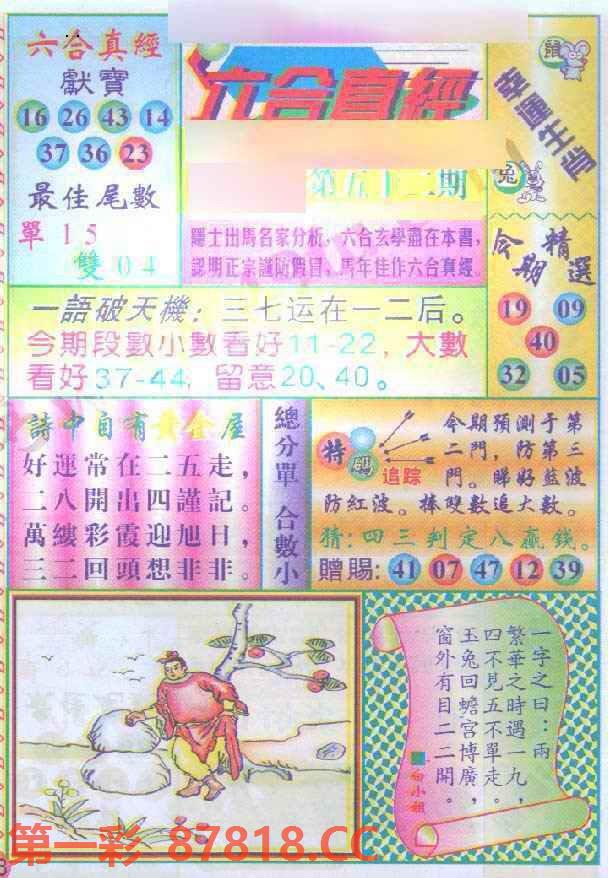 六合真經
獻寶
16 26 43 14
37 36 23
最佳尾數
單 15
雙 04
六合真經
第五十二期
隱士出馬名家分析，六合玄學盡在本書，
認明正宗謹防假冒，馬年佳作六合真經。
鼠
幸運生肖
兔
今期精選
19 09
40
32 05
一語破天機：三七运在一二后。
今期段數小數看好11-22，大數
看好37-44，留意20、40。
詩中自有黃金屋
好運常在二五走，
二八開出四謹記。
萬縷彩霞迎旭日，
三二回頭想非非。
總分單 合數小
特碼
追踪
今期預測于第
二門，防第三
門。睇好藍波
防紅波。捧雙數追大數。
猜：四三判定八贏錢。
贈賜：41 07 47 12 39
一字之曰：兩
繁華之時遇一九，
四不見五不單走。
玉兔回蟾宮博廣，
窗外有目二二開。
小姐
第一彩 87818.CC